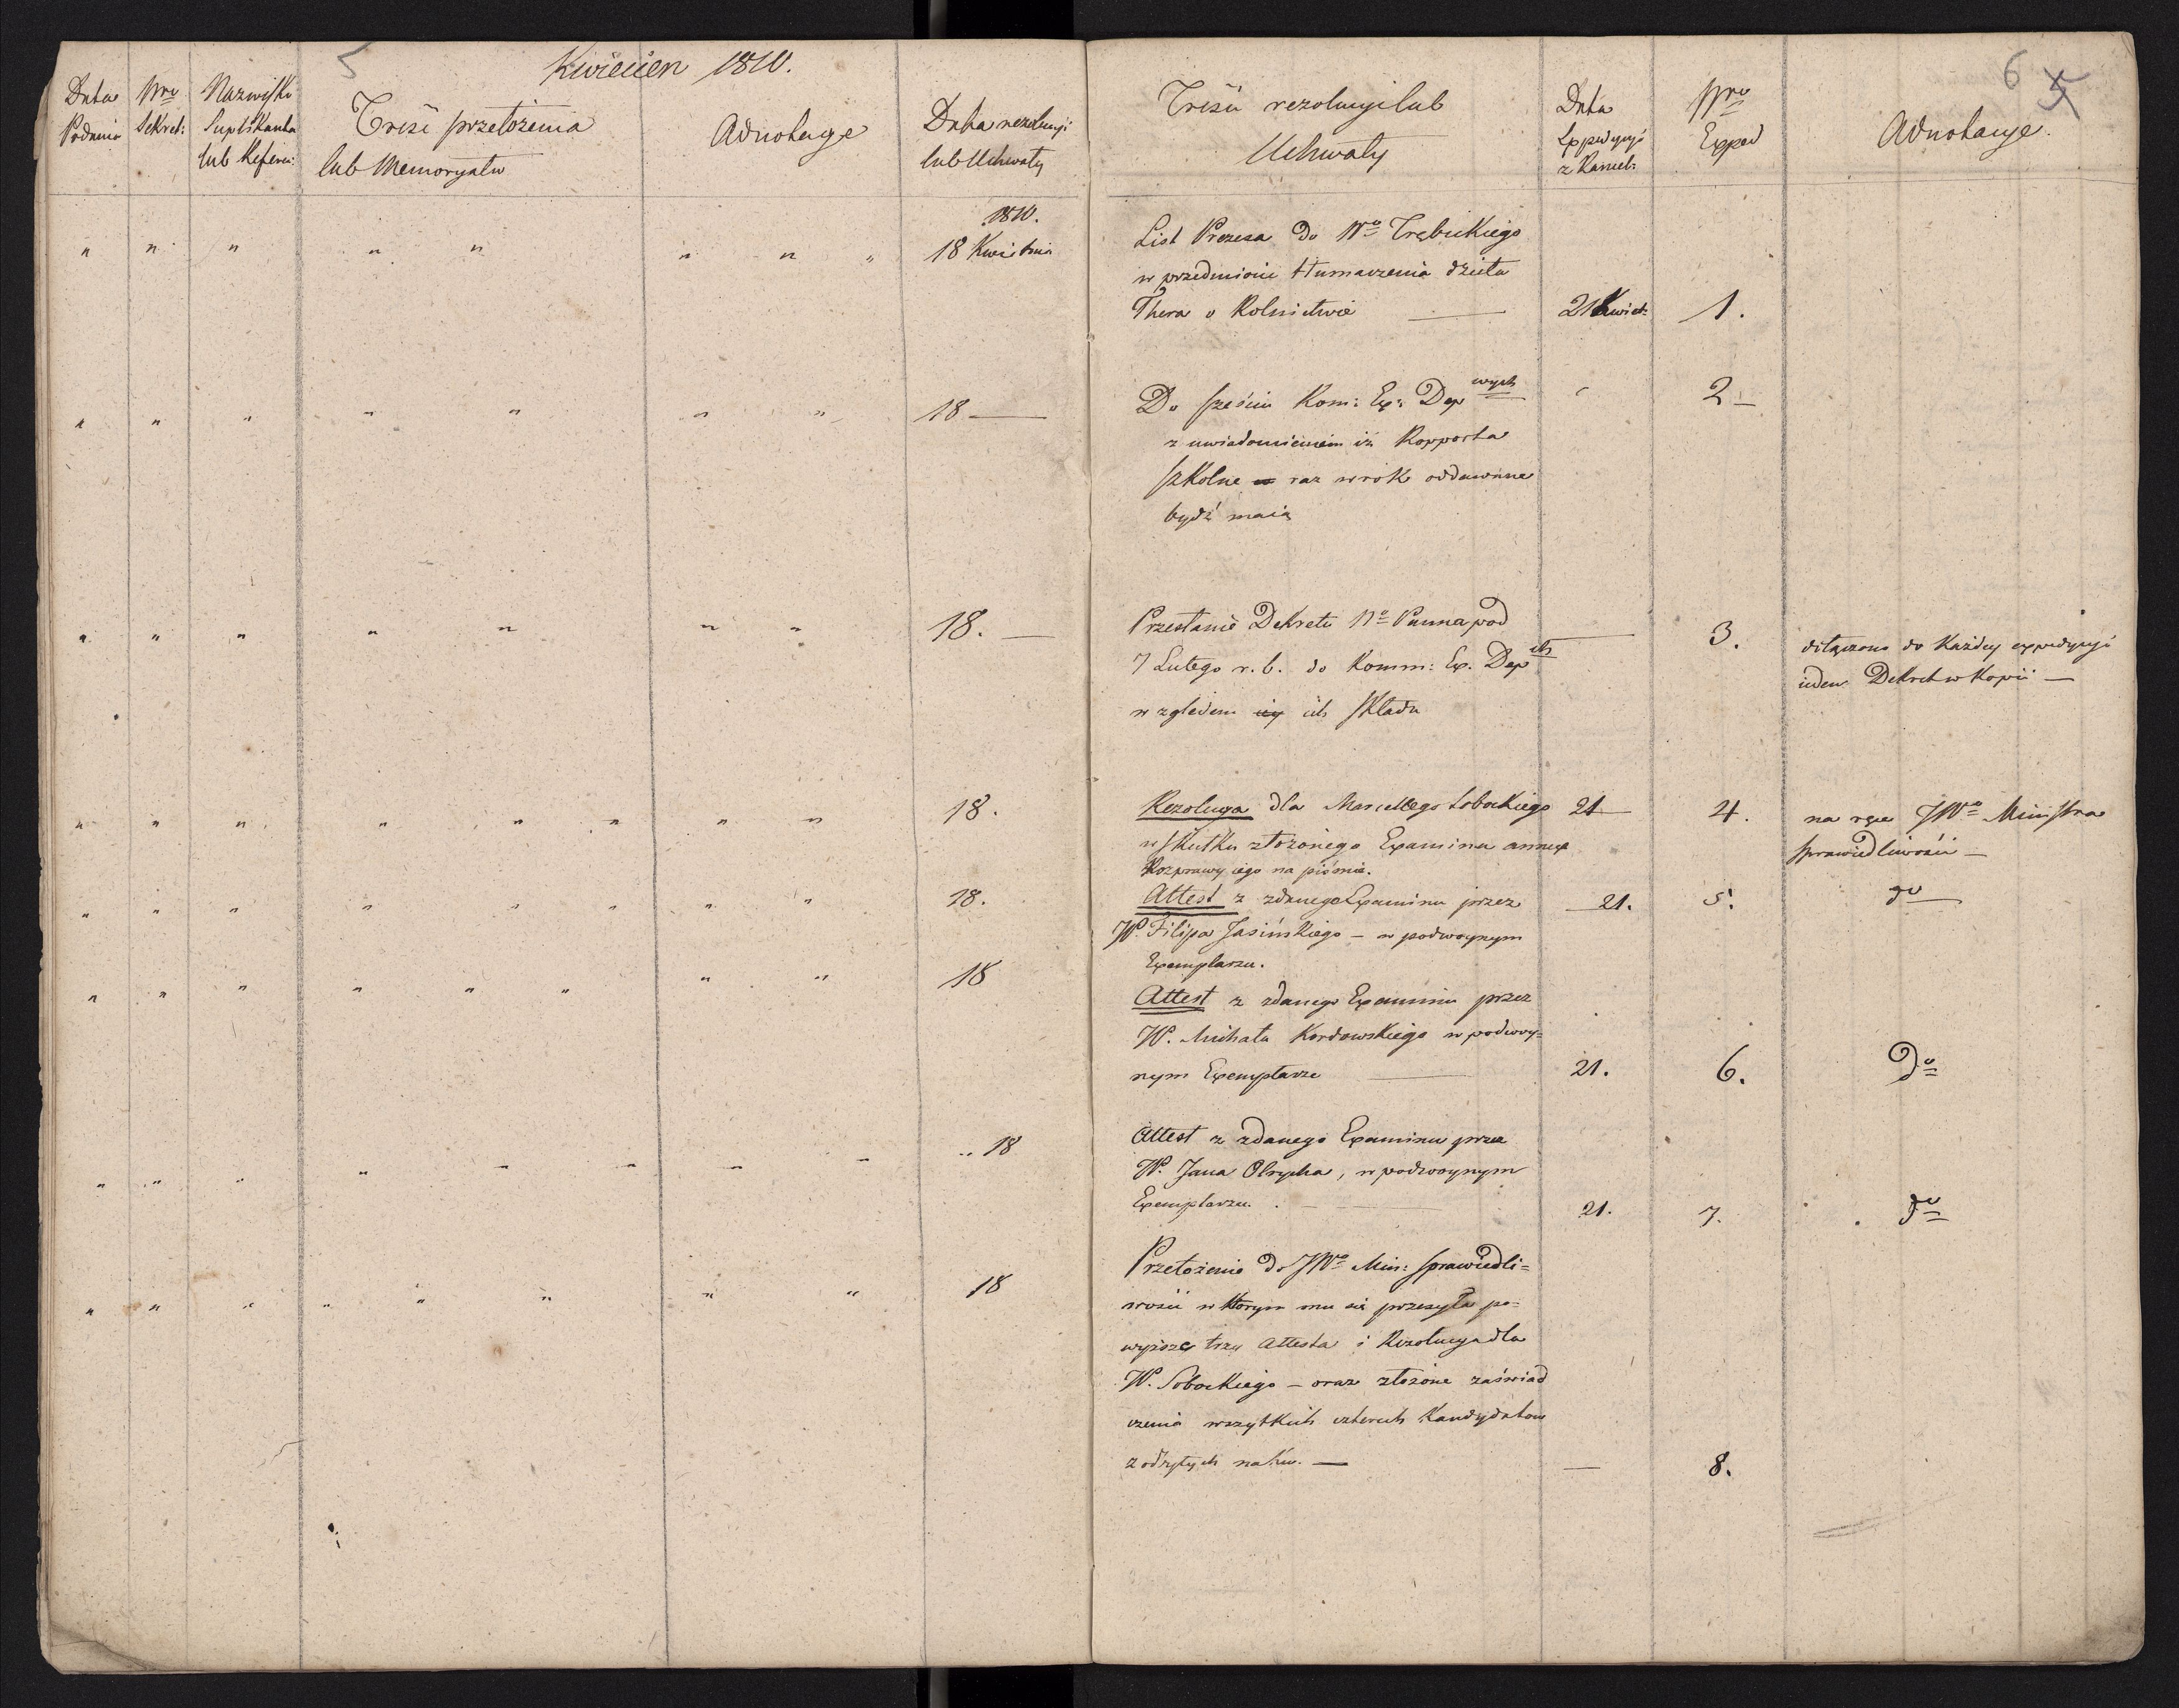 5
Kwiecien 1810.
Data Podania
Nro Sekret:
Nazwisko Suplikanta lub Referen:
Treść przełożenia lub Memoryału
Adnotacye
Data rezolucyi lub Uchwały
1810.
" " " " " " " " 18 Kwietnia
" " " " " " " 18 —
" " " " " " " 18. —
" " " " " " " " 18.
" " " " " " " " 18.
" " " " " " " " 18
" " " " " " " " 18
" " " " " " " " 18
6 5
Treść rezolucyi lub Uchwały
Data Expedycyi z Kancel:
Nro Exped
Adnotacye.
List Prezesa do Wo Trębickiego
w przedmiocie tłumaczenia dzieła
Thera o Rolnictwie — 21 Kwiet: 1.
Do sześciu Kom: Ex: Dep wych " 2 —
z uwiadomieniem iż Rapporta
szkolne raz w rok oddawane
bydź maią
Przesłanie Dekretu No Panna pod — 3. dołączono do każdey expedycyi
7 Lutego r. b. do Komm: Ex. Dep ch ieden Dekret w Kopii —
względem ich składu
Rezolucya dla Marcellego Sobockiego 21 4. na ręce JWo Ministra
w skutku złożonego Examinu annex sprawiedliwości —
Rozprawy iego na piśmie.
Attest z zdanego Examinu przez — 21. 5. do
W. Filipa Jasińskiego — w podwoynym
Exemplarzu.
Attest z zdanego Examinu przez
W. Michała Kordowskiego w podwoy=
nym Exemplarze — 21. 6. do
Attest z zdanego Examinu przez
W. Jana Olrycha, w podwoynym
Exemplarzu. — 21. 7. do
Przełożenie do JWo Min: sprawiedli=
wości w którym mu się przesyła po=
wyższe trzy Attesta i Rezolucya dla
W. Sobockiego — oraz złożone zaświad
czenia wszytkich czterech Kandydatow
z odbytych nauk. — — 8.